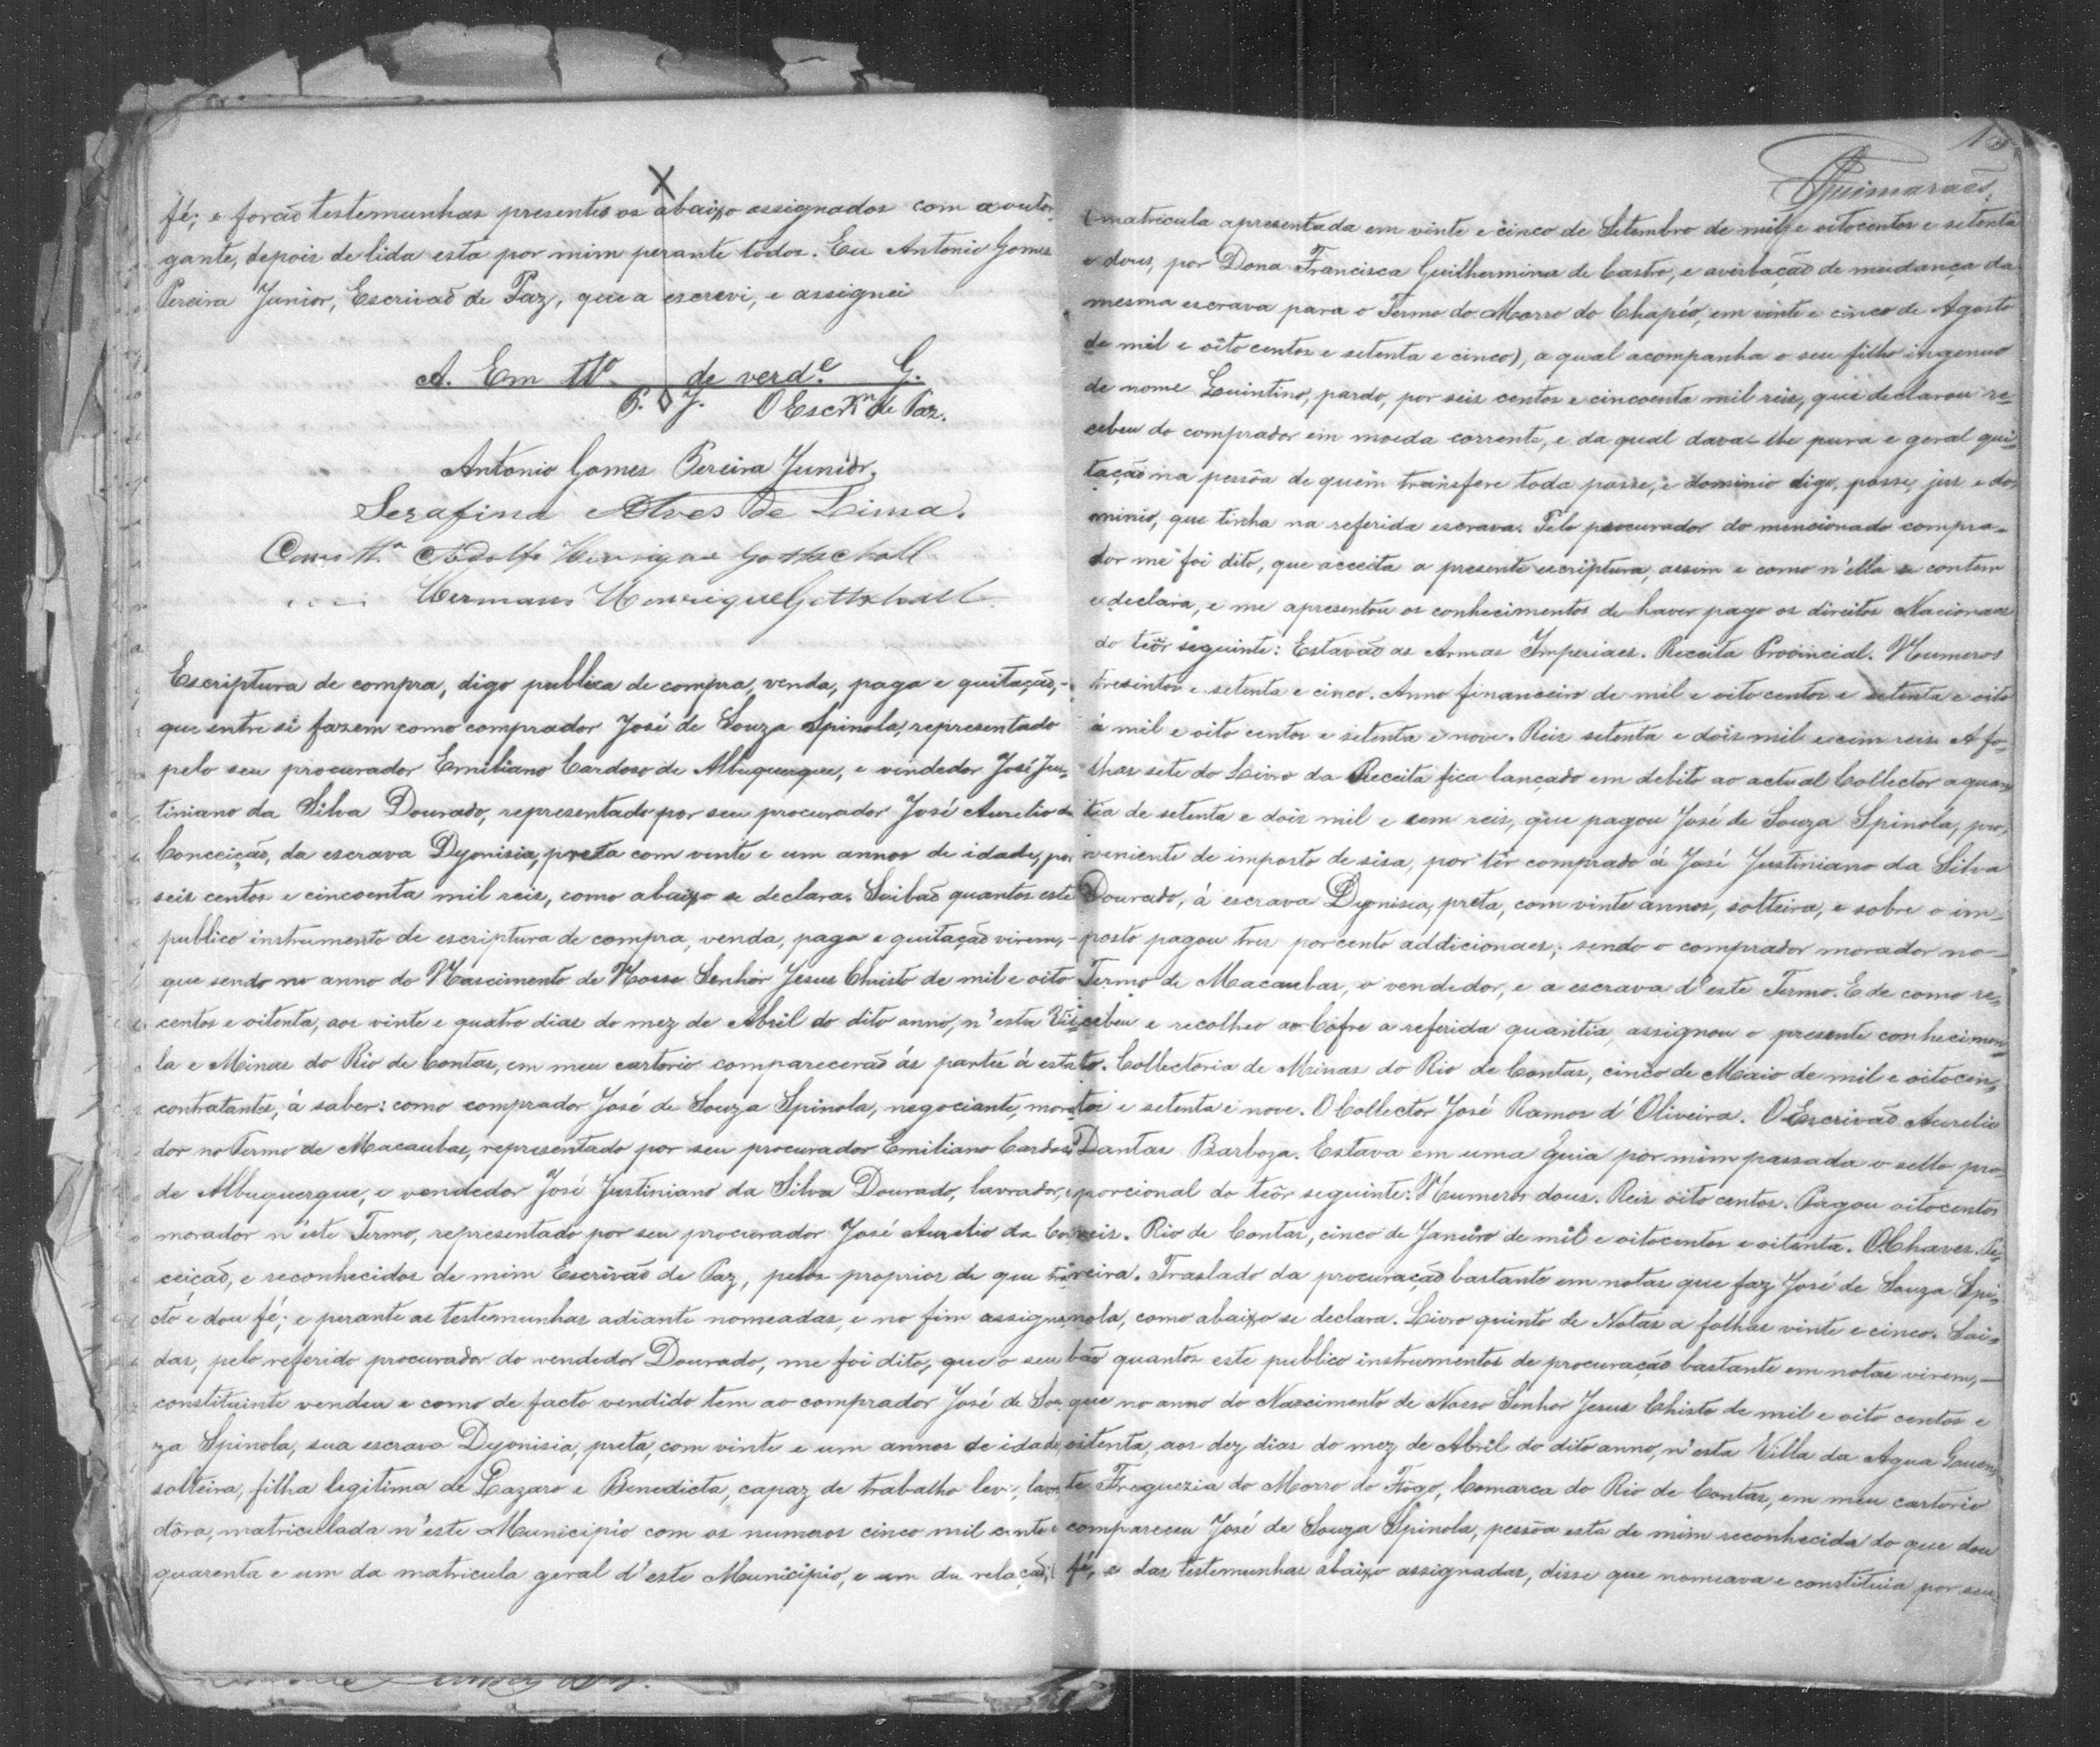 fé; e forão testemunhas presentes os abaixo assignados com a outor-
gante, depois de lida esta por mim perante todos. Eu Antonio Gomes
Pereira Junior, Escrivão de Paz, que a escrevi, e assignei
A. Em tto. de verde. G.
P. J. O Escrm de Paz.
Antonio Gomes Pereira Junior.
Serafina Alves de Lima.
Como tta. Adolfo Henrique Gottschall
Hermano Henrique Gottschall
Escriptura de compra, digo publica de compra, venda, paga e quitação,-
que entre si fazem como comprador José de Souza Spinola, representado
pelo seu procurador Emiliano Cardoso de Albuquerque, e vendedor José Jus-
tiniano da Silva Dourado, representado por seu procurador José Aurelio da
Conceição, da escrava Dyonisia, preta com vinte e um annos de idade, por
seis centos e cincoenta mil reis, como abaixo se declara. Saibão quantos este
publico instrumento de escriptura de compra, venda, paga e quitação virem,-
que sendo no anno do Nascimento de Nosso Senhor Jesus Christo de mil e oito
centos e oitenta, aos vinte e quatro dias do mez de Abril do dito anno, n'esta Vil-
la e Minas do Rio de Contas, em meu cartorio comparecerão ás partes á esta
contratantes, á saber: como comprador José de Souza Spinola, negociante, mora-
dor no Termo de Macaubas, representado por seu procurador Emiliano Cardoso
de Albuquerque, e vendedor José Justiniano da Silva Dourado, lavrador, e
morador n'este Termo, representado por seu procurador José Aurelio da Con-
ceição, e reconhecidos de mim Escrivão de Paz, pelos proprios de que tra-
cto e dou fé; e perante as testemunhas adiante nomeadas, e no fim assigna-
das, pelo referido procurador do vendedor Dourado, me foi dito, que o seu
constituinte vendeu e como de facto vendido tem ao comprador José de Sou-
za Spinola, sua escrava Dyonisia, preta, com vinte e um annos de idade,
solteira, filha legitima de Lazaro e Benedicta, capaz de trabalho leve, lavra-
dôra, matriculada n'este Municipio com os numeros cinco mil cento e
quarenta e um da matricula geral d'este Municipio, e um da relação,
Guimaraes
(matricula apresentada em vinte e cinco de Setembro de mil e oitocentos e setenta
e dous, por Dona Francisca Guilhermina de Castro, e averbação de mudança da
mesma escrava para o Termo do Morro do Chapéo, em vinte e cinco de Agosto
de mil e oito centos e setenta e cinco), a qual acompanha o seu filho ingenuo
de nome Quintino, pardo, por seis centos e cincoenta mil reis, que declarou re-
cebeu do comprador em moeda corrente, e da qual dava-lhe pura e geral qui-
tação na pessôa de quem transfere toda posse, e dominio digo, posse, jus e do-
minio, que tinha na referida escrava. Pelo procurador do mencionado compra-
dor me foi dito, que acceita a presente escriptura, assim e como n'ella se contem
e declara, e me apresentou os conhecimentos de haver pago os direitos Nacionaes
do teôr seguinte: Estavão as Armas Imperiaes. Receita Provincial. Numeros
tresentos e setenta e cinco. Anno financeiro de mil e oito centos e setenta e oito
á mil e oito centos e setenta e nove. Reis setenta e dois mil e cem reis. A fo-
lhas sete do Livro da Receita fica lançado em debito ao actual Collector a quan-
tia de setenta e dois mil e cem reis, que pagou José de Souza Spinola, pro-
veniente de imposto de sisa, por têr comprado á José Justiniano da Silva
Dourado, á escrava Dyonisia, preta, com vinte annos, solteira, e sobre o im-
posto pagou tres por cento addicionaes; sendo o comprador morador no-
Termo de Macaubas, o vendedor, e a escrava d'este Termo. E de como re-
cebeu e recolheo ao Cofre a referida quantia, assignou o presente conhecimen-
to. Collectoria de Minas do Rio de Contas, cinco de Maio de mil e oitocen-
tos e setenta e nove. O Collector José Ramos d'Oliveira. O Escrivão Aurelio
Dantas Barboza. Estava em uma guia por mim passada o sello pro-
porcional do teôr seguinte: Numeros dous. Reis oito centos. Pagou oitocentos
reis. Rio de Contas, cinco de Janeiro de mil e oitocentos e oitenta. O Chaves. Pe-
reira. Traslado da procuração bastante em notas que faz José de Souza Spi-
nola, como abaixo se declara. Livro quinto de Notas a folhas vinte e cinco. Sai-
bão quantos este publico instrumentos de procuração bastante em notas virem,-
que no anno do Nascimento de Nosso Senhor Jesus Christo de mil e oito centos e
oitenta, aos dez dias do mez de Abril do dito anno, n'esta Villa da Agua Quen-
te Freguezia do Morro do Fôgo, Comarca do Rio de Contas, em meu cartorio
compareceu José de Souza Spinola, pessôa esta de mim reconhecida do que dou
fé, e das testemunhas abaixo assignadas, disse que nomeava e constituia por seu